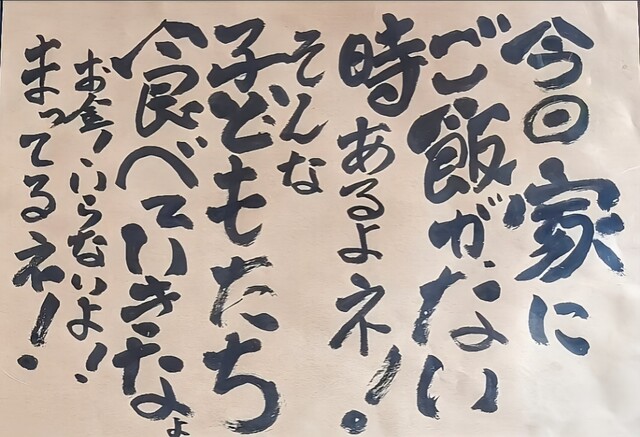 今日家に
ご飯がない
時あるよネ！
そんな
子どもたち
食べていきなょ
お金いらないよ！
まってるネ！